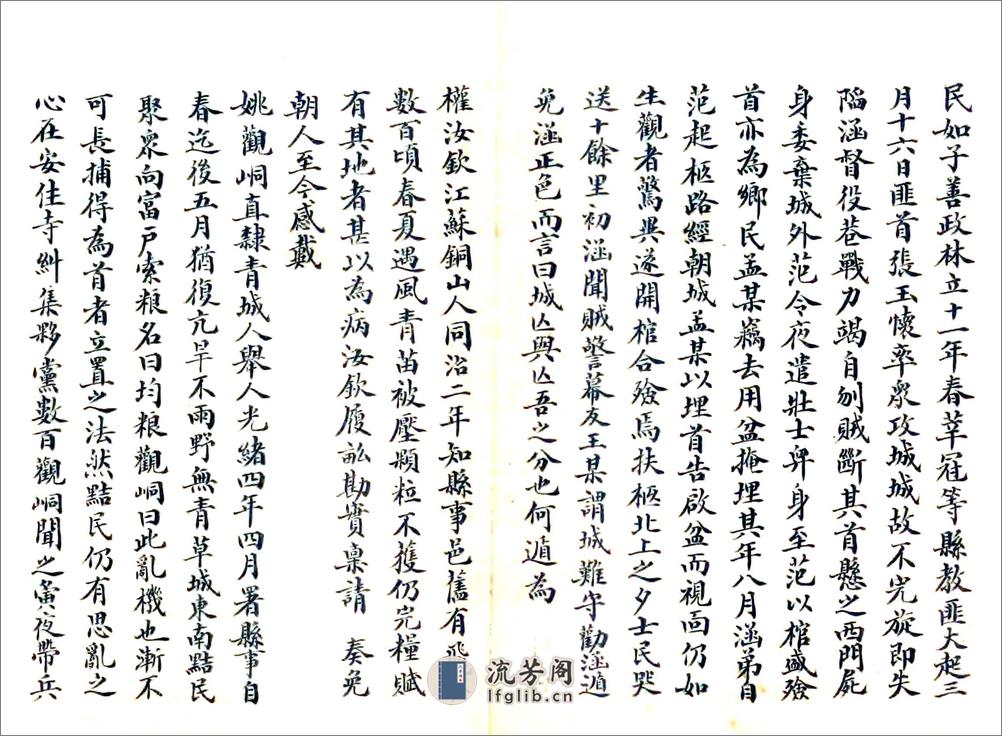 民如子善政林立十一年春莘冠等縣教匪大起三
月十六日匪首張玉懷率衆攻城城故不完旋即失
陷涵督役巷戰力竭自刎賊斷其首懸之西門屍
身委棄城外范令夜遣壯士舁身至范以棺盛殮
首亦為鄉民孟某竊去用盆掩埋其年八月涵弟自
范起柩路經朝城孟某以埋首告啟盆而視面仍如
生觀者驚異遂開棺合殮焉扶柩北上之夕士民哭
送十餘里初涵聞賊警幕友王某謂城難守勸涵遁
免涵正色而言曰城亡與亡吾之分也何遁為
權汝欽江蘇銅山人同治二年知縣事邑舊有飛
數百頃春夏遇風青苗被壓顆粒不獲仍完糧賦
有其地者甚以為病汝欽履畝勘實稟請 奏免
朝人至今感戴
姚觀峒直隸青城人舉人光緒四年四月署縣事自
春迄後五月猶復亢旱不雨野無青草城東南黠民
聚衆向富戶索粮名曰均粮觀峒曰此亂機也漸不
可長捕得為首者立置之法然黠民仍有思亂之
心在安住寺糾集夥黨數百觀峒聞之黃夜帶兵
流芳阁
lfglib.cn